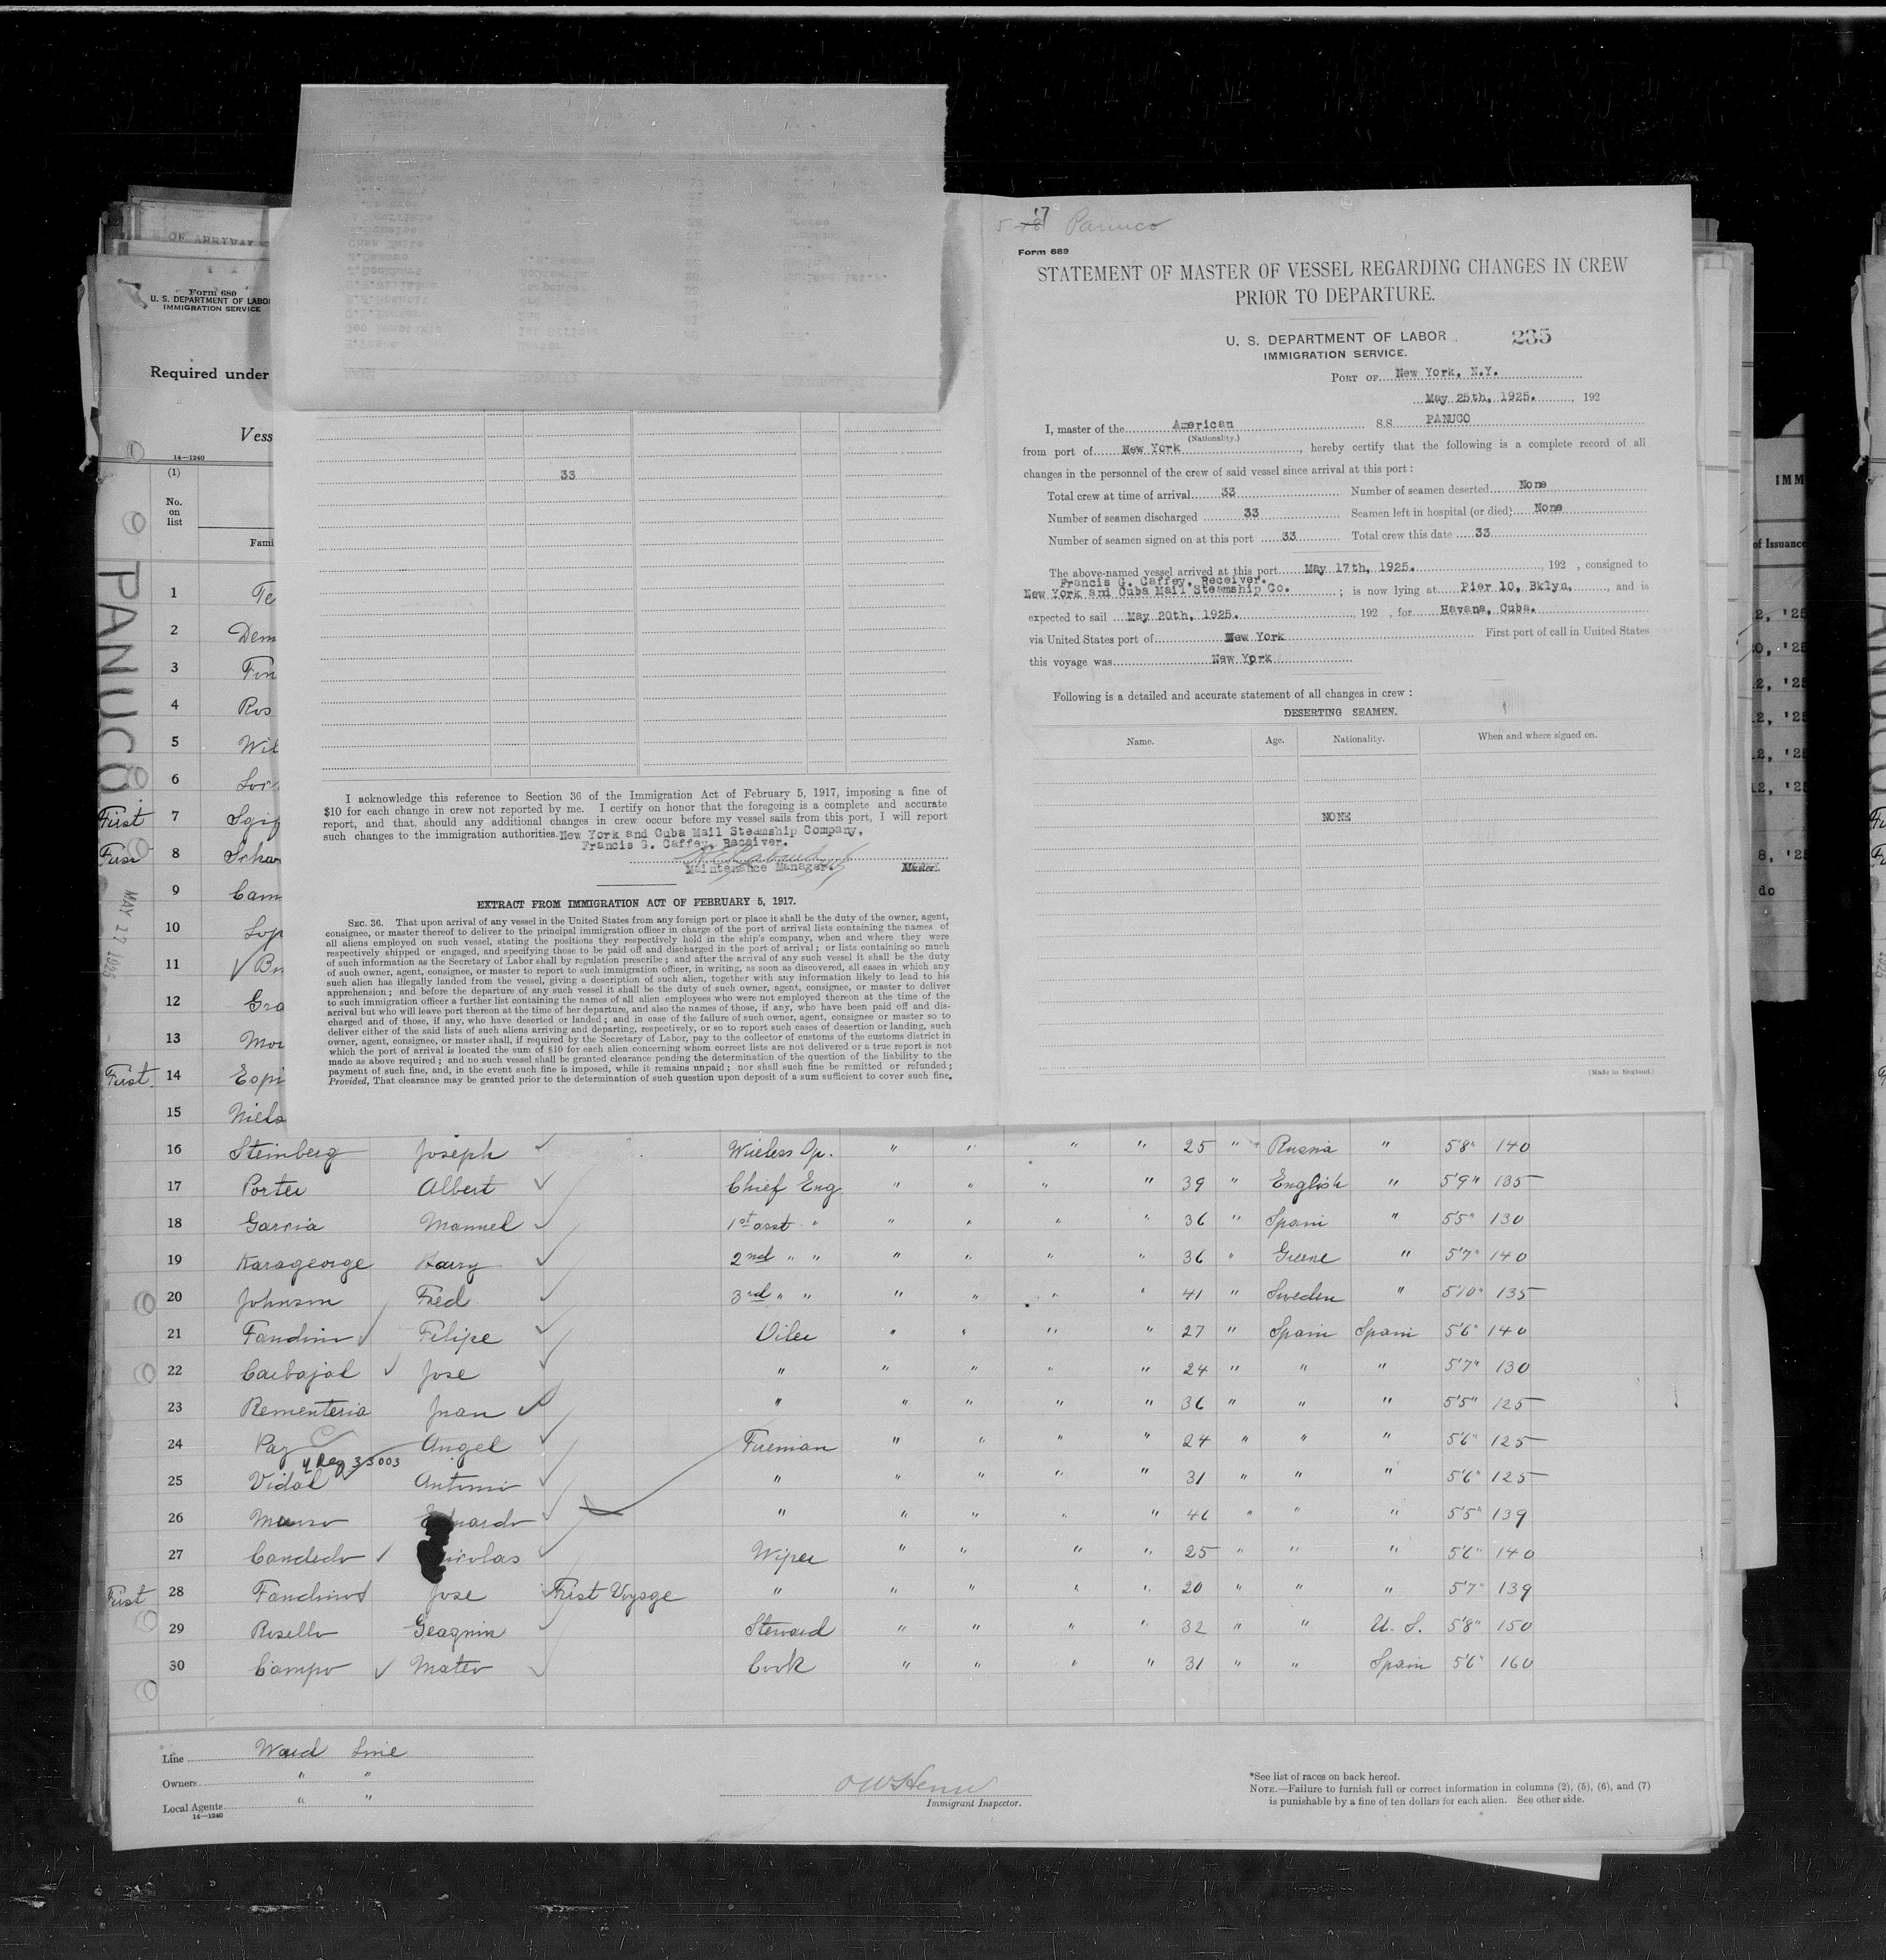 5 17 Panuco
Form 689
STATEMENT OF MASTER OF VESSEL REGARDING CHANGES IN CREW
PRIOR TO DEPARTURE.
U. S. DEPARTMENT OF LABOR
235
IMMIGRATION SERVICE.
PORT OF New York, N.Y.
May 25th, 1925. , 192
I, master of the American S.S. PANUCO
(Nationality.)
from port of New York , hereby certify that the following is a complete record of all
changes in the personnel of the crew of said vessel since arrival at this port :
Total crew at time of arrival 33 Number of seamen deserted None
Number of seamen discharged 33 Seamen left in hospital (or died) None
Number of seamen signed on at this port 33 Total crew this date 33
The above-named vessel arrived at this port May 17th, 1925. , 192 , consigned to
Francis G. Caffey, Receiver.
New York and Cuba Mail Steamship Co. ; is now lying at Pier 10, Bklyn, , and is
expected to sail May 20th, 1925. , 192 , for Havana, Cuba.
via United States port of New York First port of call in United States
this voyage was New York
Following is a detailed and accurate statement of all changes in crew :
DESERTING SEAMEN.
Name. Age. Nationality. When and where signed on.
NONE
(Made in England.)
33
I acknowledge this reference to Section 36 of the Immigration Act of February 5, 1917, imposing a fine of
$10 for each change in crew not reported by me. I certify on honor that the foregoing is a complete and accurate
report, and that, should any additional changes in crew occur before my vessel sails from this port, I will report
such changes to the immigration authorities. New York and Cuba Mail Steamship Company,
Francis G. Caffey, Receiver.
Maintenance Manager. Master.
EXTRACT FROM IMMIGRATION ACT OF FEBRUARY 5, 1917.
SEC. 36. That upon arrival of any vessel in the United States from any foreign port or place it shall be the duty of the owner, agent,
consignee, or master thereof to deliver to the principal immigration officer in charge of the port of arrival lists containing the names of
all aliens employed on such vessel, stating the positions they respectively hold in the ship's company, when and where they were
respectively shipped or engaged, and specifying those to be paid off and discharged in the port of arrival ; or lists containing so much
of such information as the Secretary of Labor shall by regulation prescribe ; and after the arrival of any such vessel it shall be the duty
of such owner, agent, consignee, or master to report to such immigration officer, in writing, as soon as discovered, all cases in which any
such alien has illegally landed from the vessel, giving a description of such alien, together with any information likely to lead to his
apprehension ; and before the departure of any such vessel it shall be the duty of such owner, agent, consignee, or master to deliver
to such immigration officer a further list containing the names of all alien employees who were not employed thereon at the time of the
arrival but who will leave port thereon at the time of her departure, and also the names of those, if any, who have been paid off and dis-
charged and of those, if any, who have deserted or landed ; and in case of the failure of such owner, agent, consignee or master so to
deliver either of the said lists of such aliens arriving and departing, respectively, or so to report such cases of desertion or landing, such
owner, agent, consignee, or master shall, if required by the Secretary of Labor, pay to the collector of customs of the customs district in
which the port of arrival is located the sum of $10 for each alien concerning whom correct lists are not delivered or a true report is not
made as above required ; and no such vessel shall be granted clearance pending the determination of the question of the liability to the
payment of such fine, and, in the event such fine is imposed, while it remains unpaid ; nor shall such fine be remitted or refunded ;
Provided, That clearance may be granted prior to the determination of such question upon deposit of a sum sufficient to cover such fine.
Form 680
U. S. DEPARTMENT OF LABO
IMMIGRATION SERVICE
Required under
Vess
14—1240
(1)
No.
on
list
Fami
PANUCO
MAY 17 1925
1 Te
2 Dem
3 Fin
4 Ros
5 Wil
6 Lor
First 7 Sgig
First 8 Schw
9 Cam
10 Lop
11 Bu
12 Gra
13 Mor
First 14 Espi
15 Niels
16 Steinberg Joseph Wireless Op. " " " " 25 " Russia " 5'8" 140
17 Porter Albert Chief Eng. " " " " 39 " English " 5'9" 135
18 Garcia Manuel 1st asst " " " " " 36 " Spain " 5'5" 130
19 Karageorge Harry 2nd " " " " " " 36 " Greece " 5'7" 140
20 Johnson Fred 3rd " " " " " " 41 " Sweden " 5'10" 135
21 Fandino Filipe Oiler " " " " 27 " Spain Spain 5'6" 140
22 Carbajal Jose " " " " " 24 " " " 5'7" 130
23 Rementeria Juan " " " " " 36 " " " 5'5" 125
24 Paz Angel Fireman " " " " 24 " " " 5'6" 125
Reg 35003
25 Vidal Antonio " " " " " 31 " " " 5'6" 125
26 Manso " " " " " 46 " " " 5'5" 139
27 Candedo Nicolas Wiper " " " " 25 " " " 5'6" 140
First 28 Fandino Jose First Voyage " " " " " 20 " " " 5'7" 139
29 Rosello Geaquin Steward " " " " 32 " " U. S. 5'8" 150
30 Campo Mateo Cook " " " " 31 " " Spain 5'6" 160
Line Ward Line
Owners " "
Local Agents " "
14—1240
Immigrant Inspector.
*See list of races on back hereof.
NOTE.—Failure to furnish full or correct information in columns (2), (5), (6), and (7)
is punishable by a fine of ten dollars for each alien. See other side.
IMM
of Issuance
2, '25
0, '25
2, '25
12, '25
2, '25
12, '25
8, '25
do